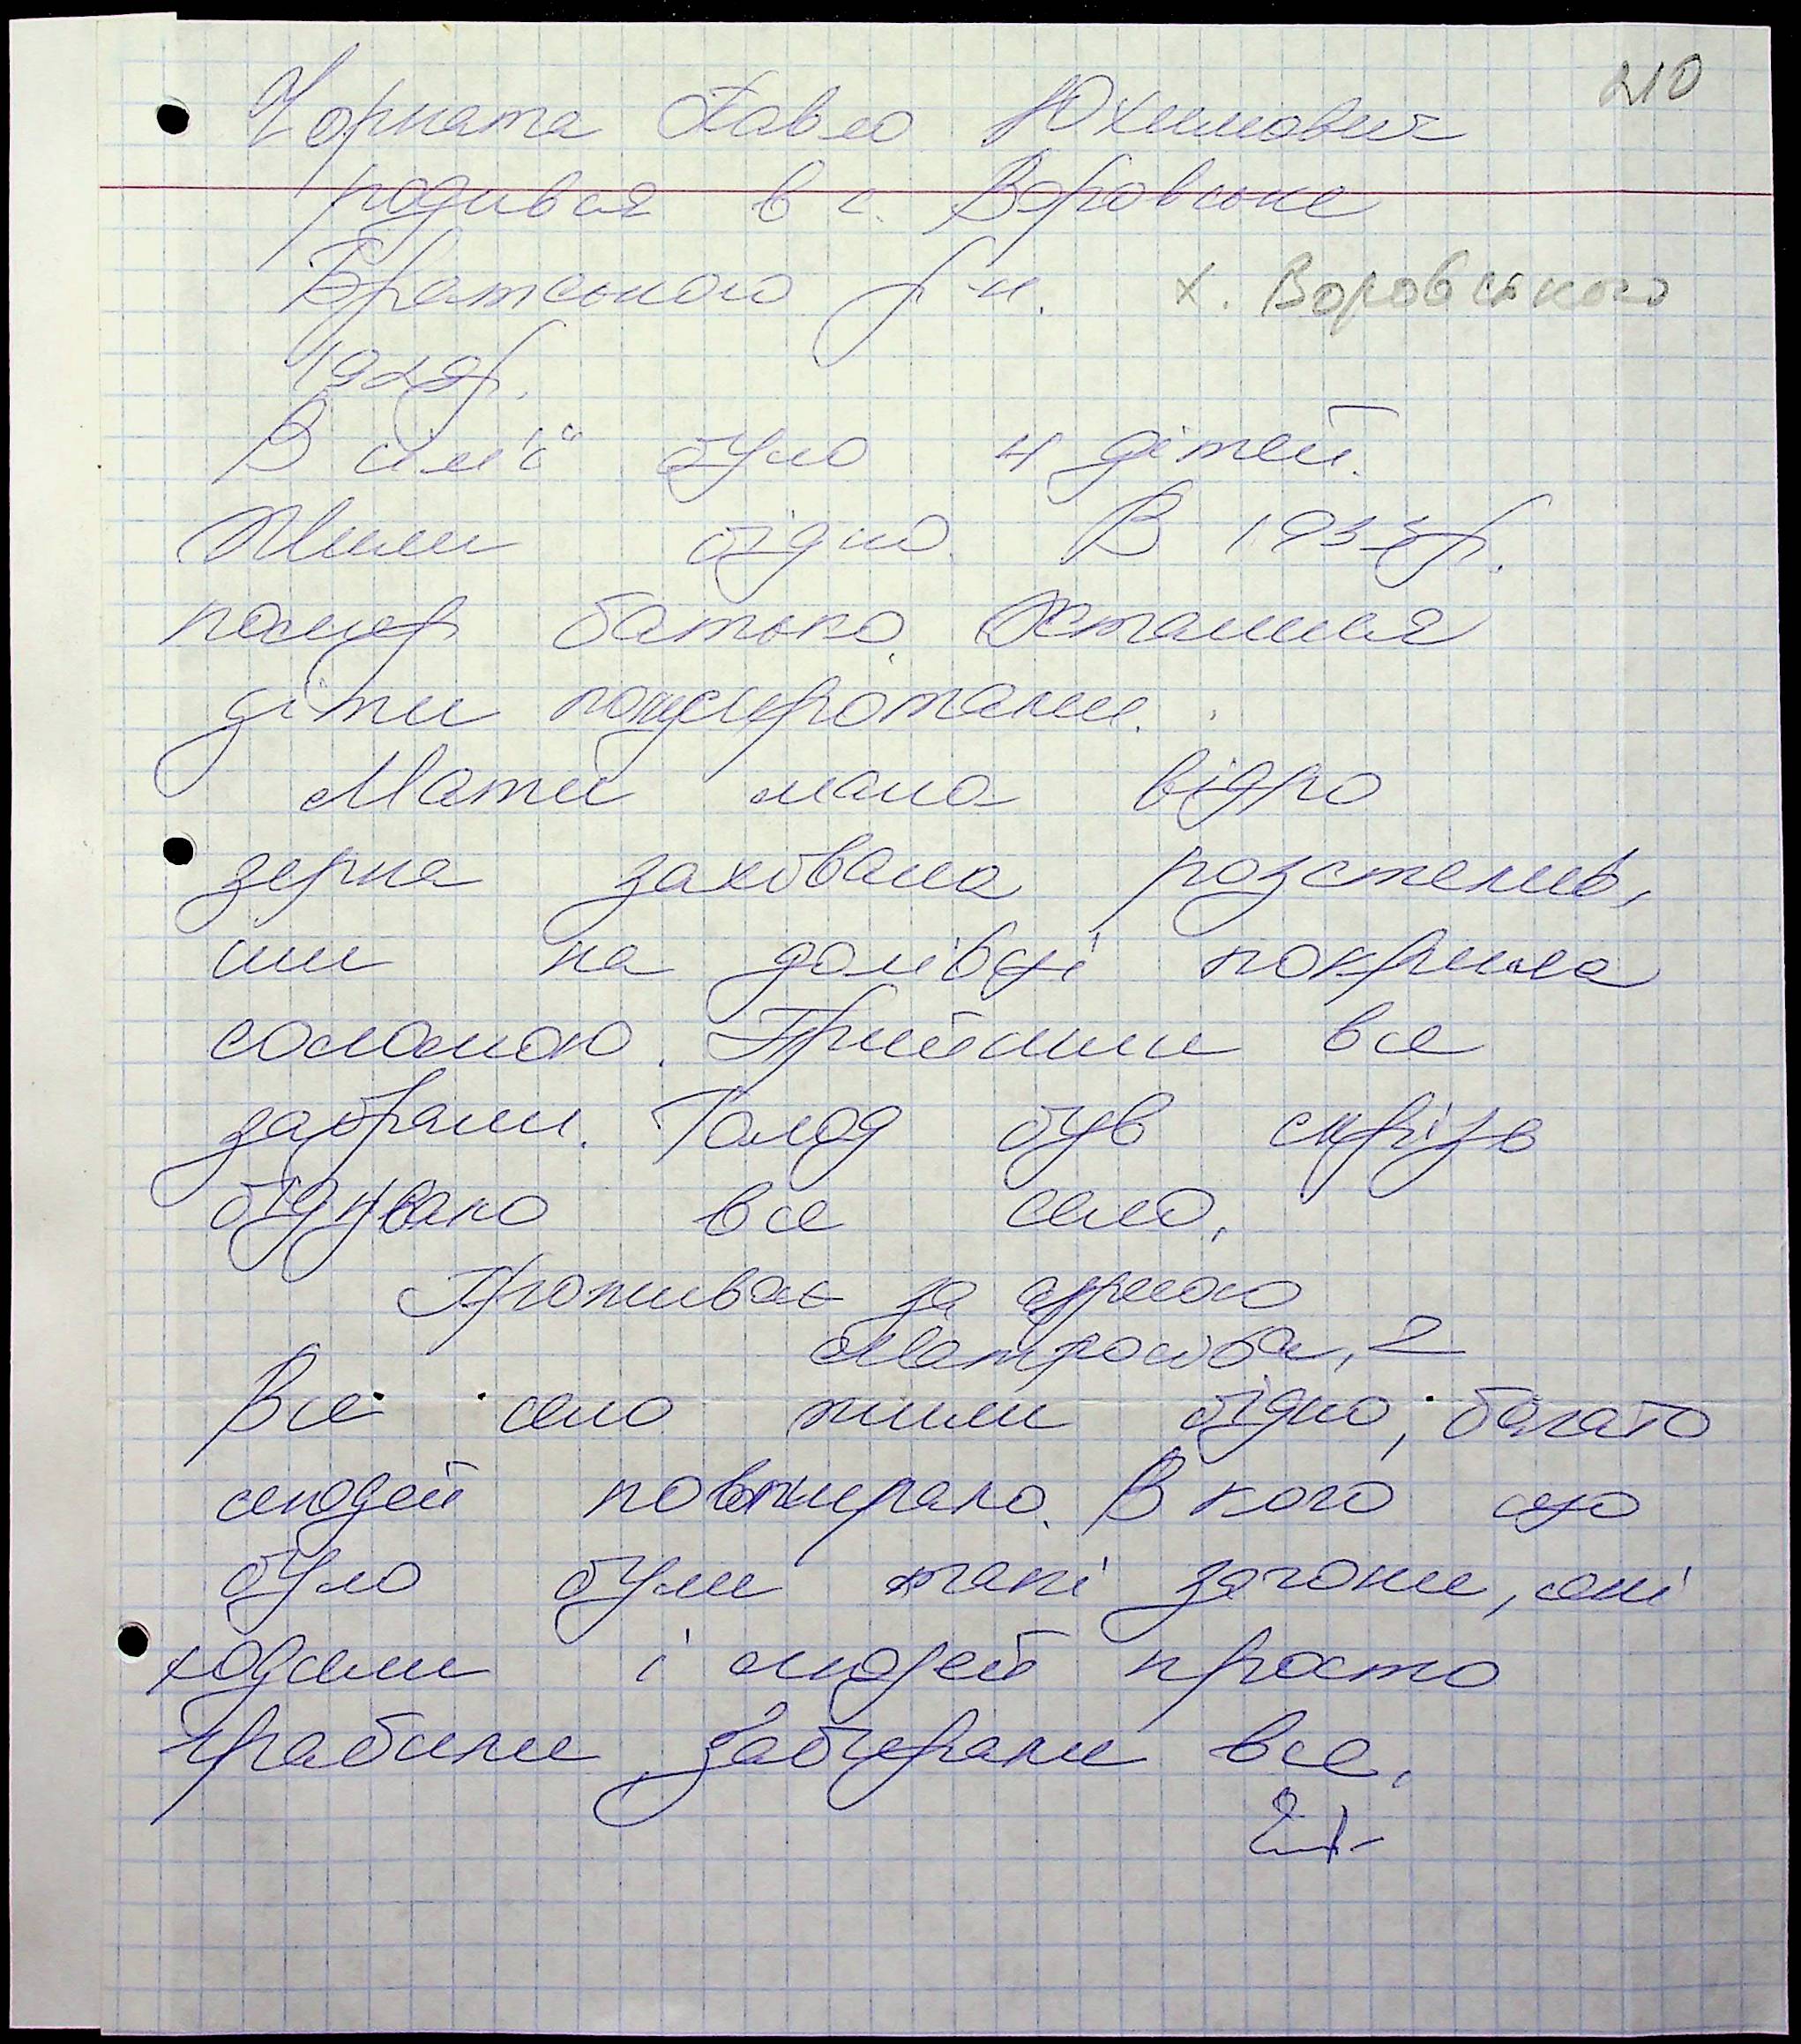 210
Чорната Павло Юхимович
родився в с. Воровське
Братського р-н. х. Воровського
1929р.
В сім'ї було 4 дітей.
Жили бідно. В 1933р.
помер батько. Осталися
діти полусиротами.
Мати мала відро
зерна заховала розстелив,
ши на долівці покрила
соломою. Прийшли все
забрали. Голод був скрізь
бідувало все село.
Проживає за адресою
Матросова, 2
Все село жили бідно, багато
людей повмирало. В кого що
було були такі загони, які
ходили і людей просто
грабили, забирали все.